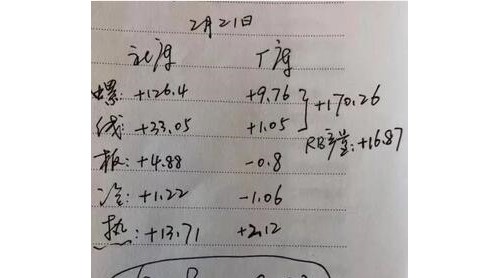 2月21日
社库 厂库
螺: +126.4 +9.76
线: +33.05 +1.05
+170.26
RB产量: +16.87
板: +4.88 -0.8
冷: +1.22 -1.06
热: +13.71 +2.12